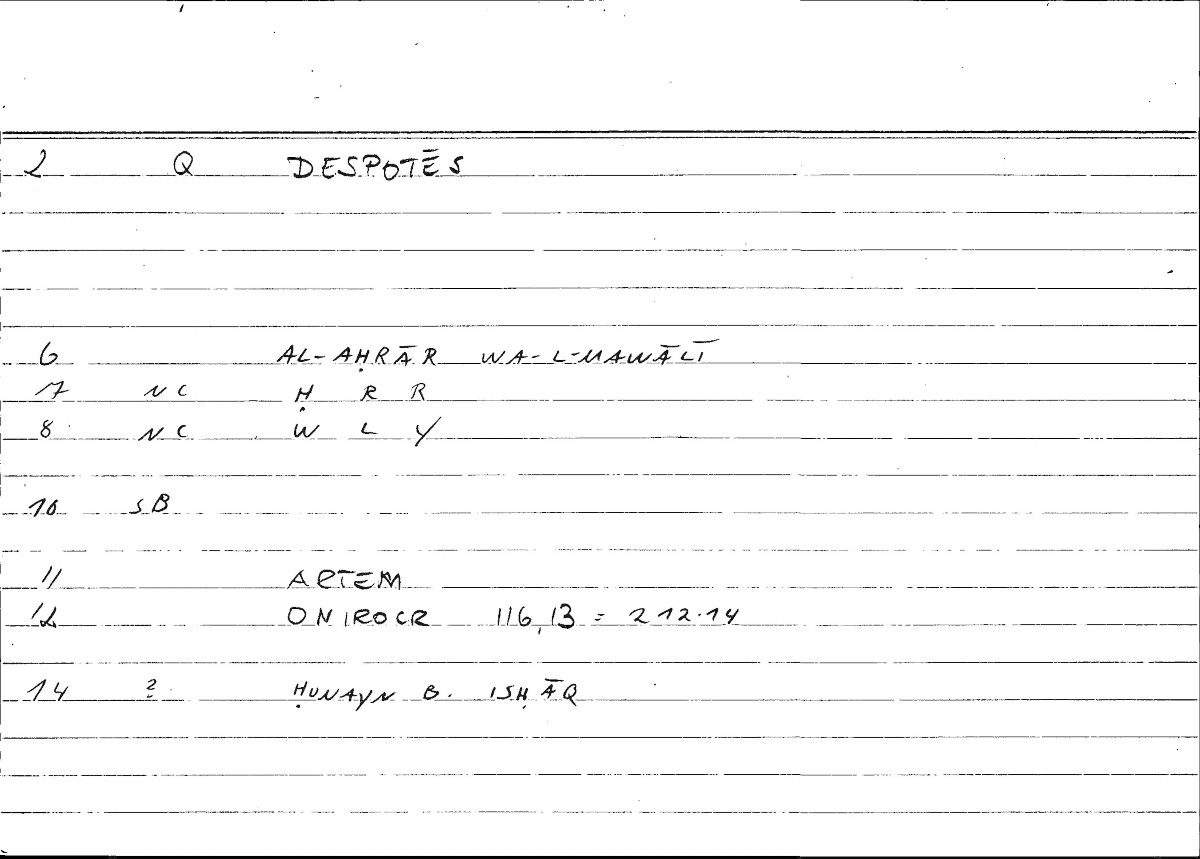 2 Q DESPOTĒS
6 AL-AḤRĀR WA-L-MAWĀLĪ
7 NC Ḥ R R
8 NC W L Y
10 SB
11 ARTEM
12 ONIROCR 116,13 = 212.14
14 2 ḤUNAYN B. ISḤĀQ